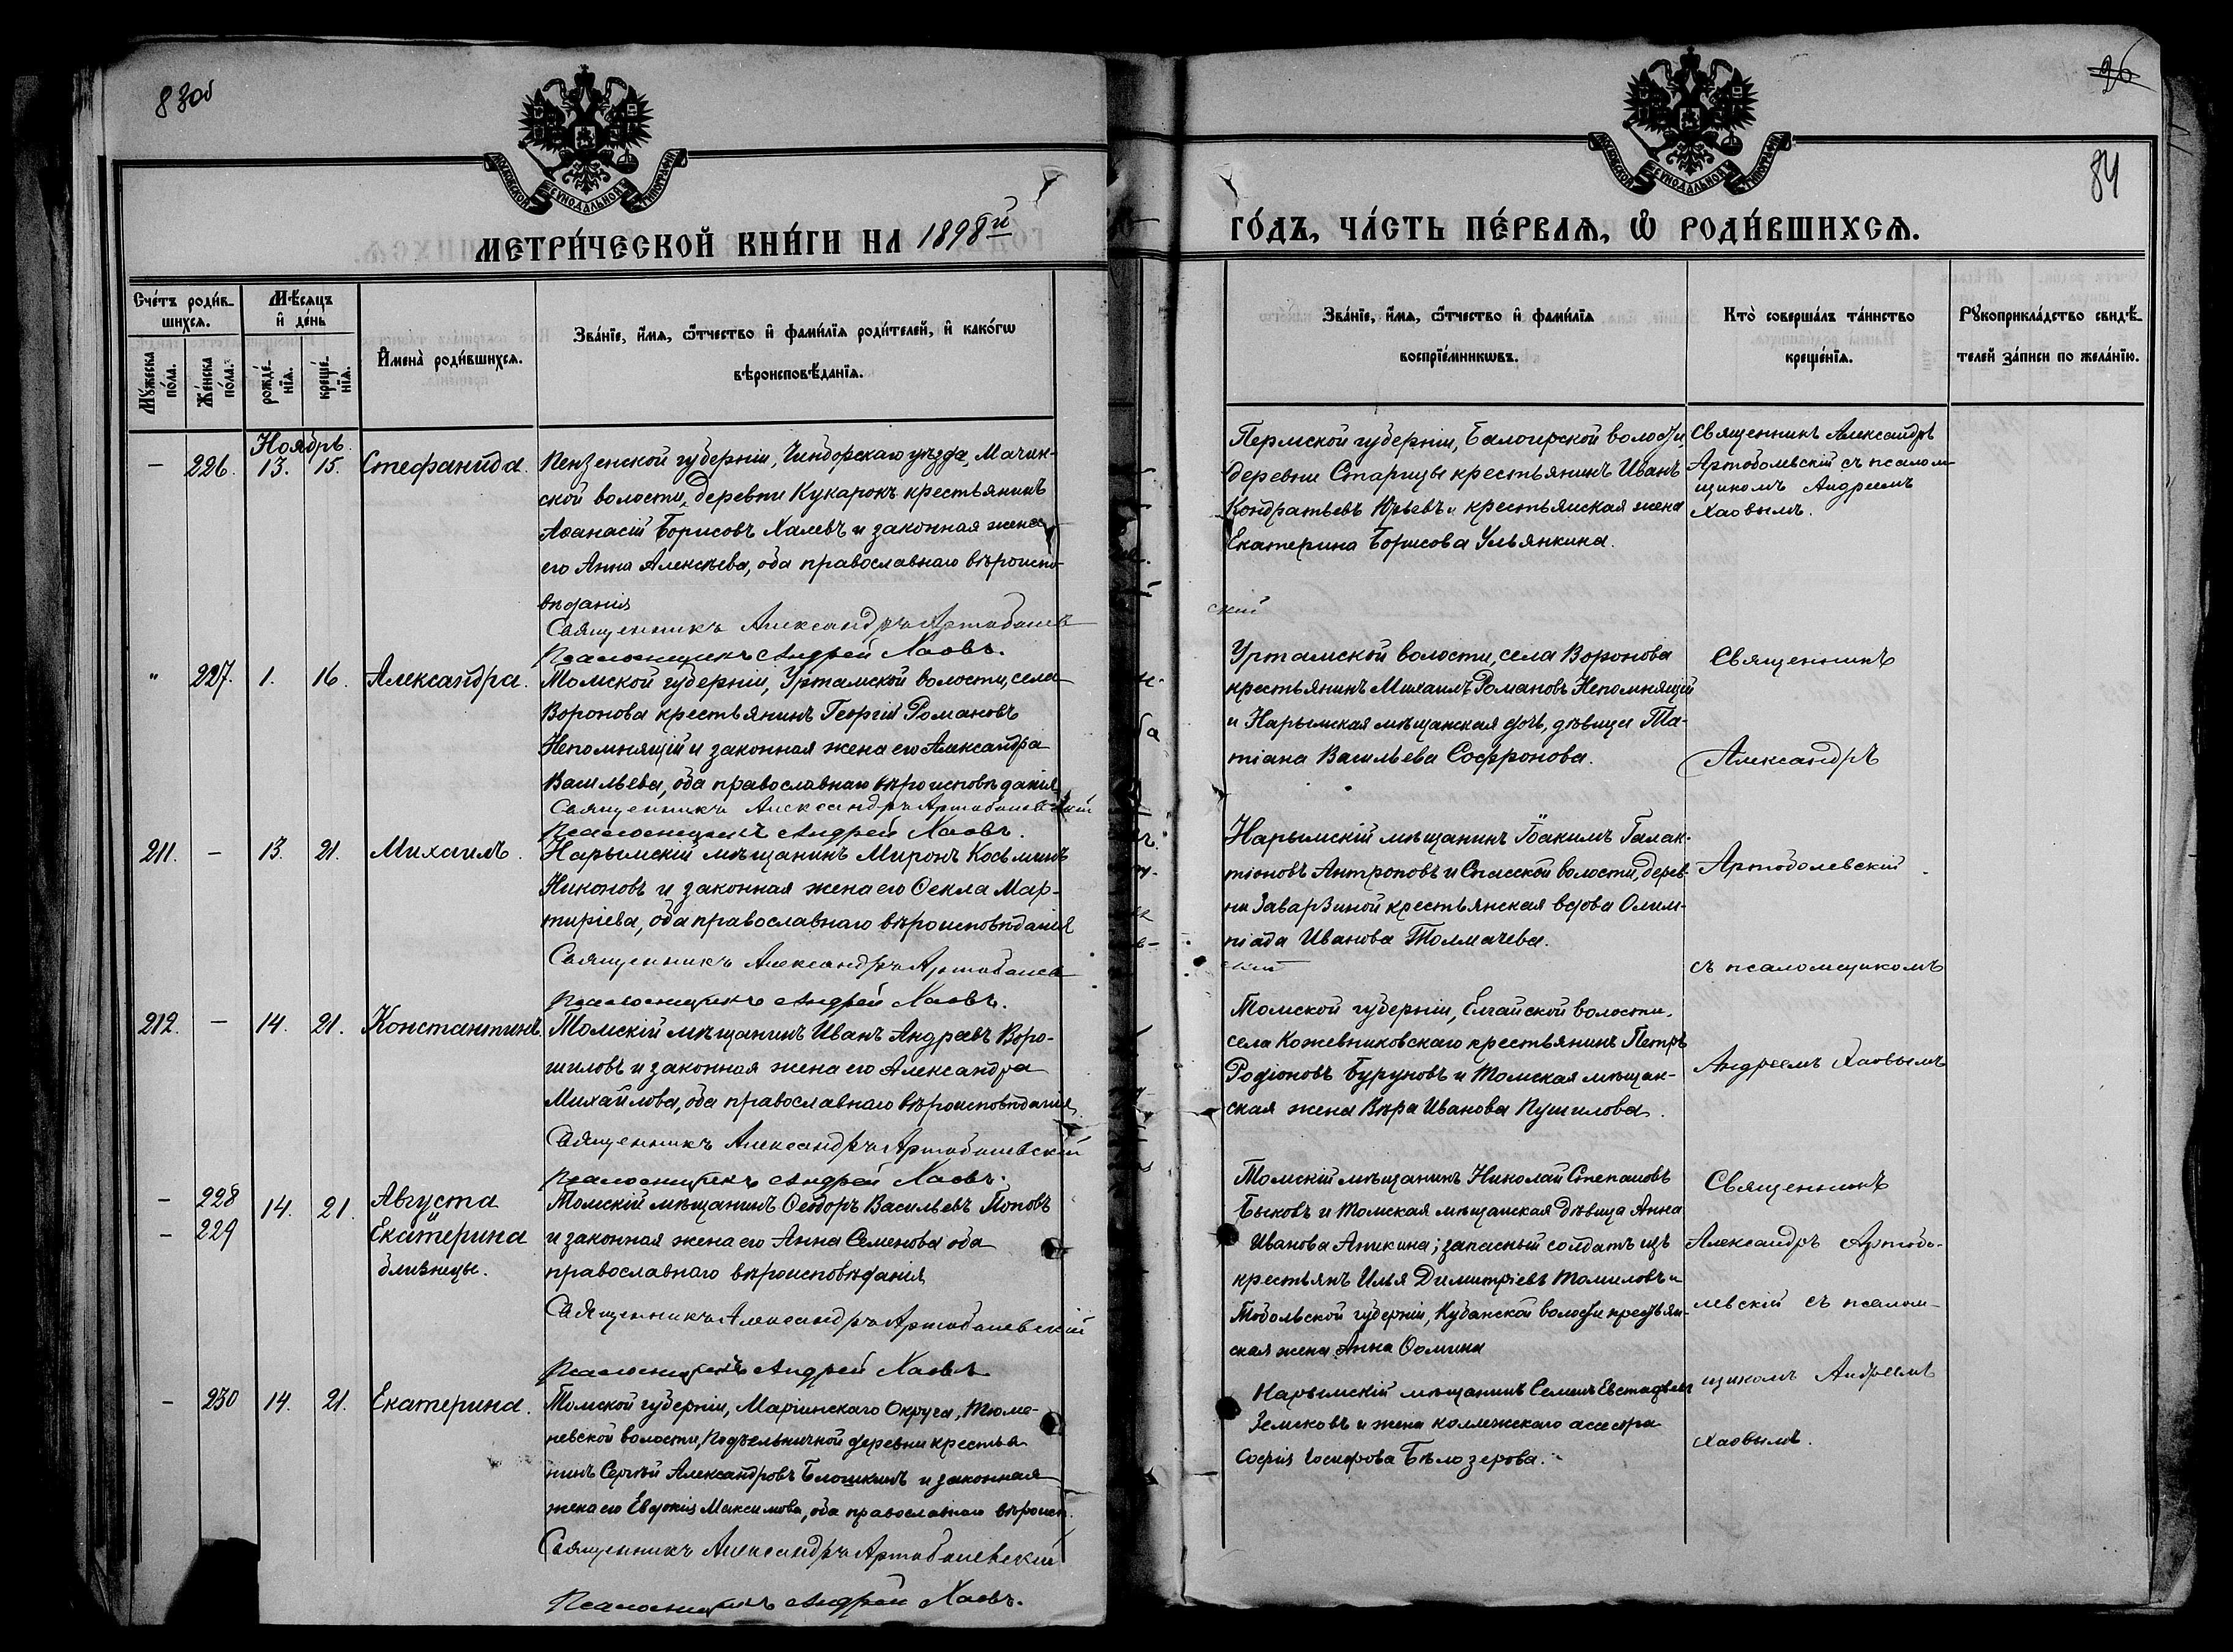 83об
МОСКОВСКОЙ СѴНОДАЛЬНОЙ ТИПОГРАФІИ
МЕТРИ́ЧЕСКОЙ КНИ́ГИ НА 1898й
Сче́тъ роди́в-
шихся.
Мѣ́сяцъ
и҆ де́нь
Мꙋ́жеска
по́ла.
Же́нска
по́ла.
рожде́-
нїя.
креще́-
нїя.
И҆мена̀ роди́вшихся.
Зва́нїе, и҆́мя, ѻ҆́тчество и҆ фами́лїя роди́телей, и҆ како́гѡ
вѣроисповѣ́данїя.
Ноябрь.
— 226. 13. 15. Стефанида.
Пензенской губерніи, Чембарскаго уѣзда, Мачин-
ской волости, деревни Кукарокъ крестьянинъ
Аѳанасій Борисовъ Халевъ и законная жена
его Анна Алексѣева, оба православнаго вѣроиспо-
вѣданія
Священникъ Александръ Артоболев
Псаломщикъ Андрей Хаовъ.
" 227. 1. 16. Александра.
Томской губерніи, Уртамской волости, села
Воронова крестьянинъ Георгій Романовъ
Непомнящій и законная жена его Александра
Васильева, оба православнаго вѣроисповѣданія
Священникъ Александръ Артоболевскій
Псаломщикъ Андрей Хаовъ.
211. — 13. 21. Михаилъ.
Нарымскій мѣщанинъ Миронъ Косьминъ
Никоновъ и законная жена его Ѳекла Мар-
тиріева, оба православнаго вѣроисповѣданія
Священникъ Александръ Артоболев
Псаломщикъ Андрей Хаовъ.
212. — 14. 21. Константинъ.
Томскій мѣщанинъ Иванъ Андреевъ Воро-
шиловъ и законная жена его Александра
Михайлова, оба православнаго вѣроисповѣданія
Священникъ Александръ Артоболевскій
Псаломщикъ Андрей Хаовъ.
— 228 14. 21. Августа
и
— 229 Екатерина
близнецы.
Томскій мѣщанинъ Ѳеодоръ Васильевъ Поповъ
и законная жена его Анна Семенова оба
православнаго вѣроисповѣданія
Священникъ Александръ Артоболевскій
Псаломщикъ Андрей Хаовъ
— 230 14. 21. Екатерина.
Томской губерніи, Маріинскаго Округа, Тюме-
невской волости, Подъельничной деревни крестья
нинъ Сергѣй Александровъ Блошкинъ и законная
жена его Евдокія Максимова, оба православнаго вѣроисп.
Священникъ Александръ Артоболевскій
Псаломщикъ Андрей Хаовъ.
26
84
МОСКОВСКОЙ СѴНОДАЛЬНОЙ ТИПОГРАФІИ
ГО́ДЪ, ЧА́СТЬ ПЕ́РВАЯ, Ѡ҆ РОДИ́ВШИХСЯ.
Зва́нїе, и҆́мя, ѻ҆́тчество и҆ фами́лїя
воспрїе́мникѡвъ.
Кто̀ соверша́лъ та́инство
креще́нїя.
Рꙋкоприкла́дство свидѣ́-
телей за́писи по жела́нїю.
Пермской губерніи, волости
деревни Старицы крестьянинъ Иванъ
Кондратьевъ Юрьевъ и крестьянская жена
Екатерина Борисова Ульянкина.
скій
Священникъ Александръ
Артоболевскій съ псалом-
щикомъ Андреемъ
Хаовымъ.
Уртамской волости, села Воронова
крестьянинъ Михаилъ Романовъ Непомнящій
и Нарымская мѣщанская дочь, дѣвица Та-
тіана Васильева Софронова.
Нарымскій мѣщанинъ Іоакимъ Галак-
тіоновъ Антроповъ и Спасской волости, дерев-
ни Заварзиной крестьянская вдова Олим-
піада Иванова Толмачева.
скій
Томской губерніи, Елгайской волости,
села Кожевниковскаго крестьянинъ Петръ
Родіоновъ Буруновъ и Томская мѣщан-
ская жена Вѣра Иванова Пушилова.
Священникъ
Александръ
Артоболевскій
съ псаломщикомъ
Андреемъ Хаовымъ
Томскій мѣщанинъ Николай Степановъ
Быковъ и Томская мѣщанская дѣвица Анна
Иванова Аникина; запасный солдатъ изъ
крестьянъ Илья Димитріевъ Томиловъ и
Тобольской губерніи, Кубанской волости крестьян-
ская жена Анна Ѳомина
Нарымскій мѣщанинъ Семенъ
Земсковъ и жена коллежскаго асесора
Софія Іосифова Бѣлозерова.
Священникъ
Александръ Артобо-
левскій съ псалом-
щикомъ Андреемъ
Хаовымъ.